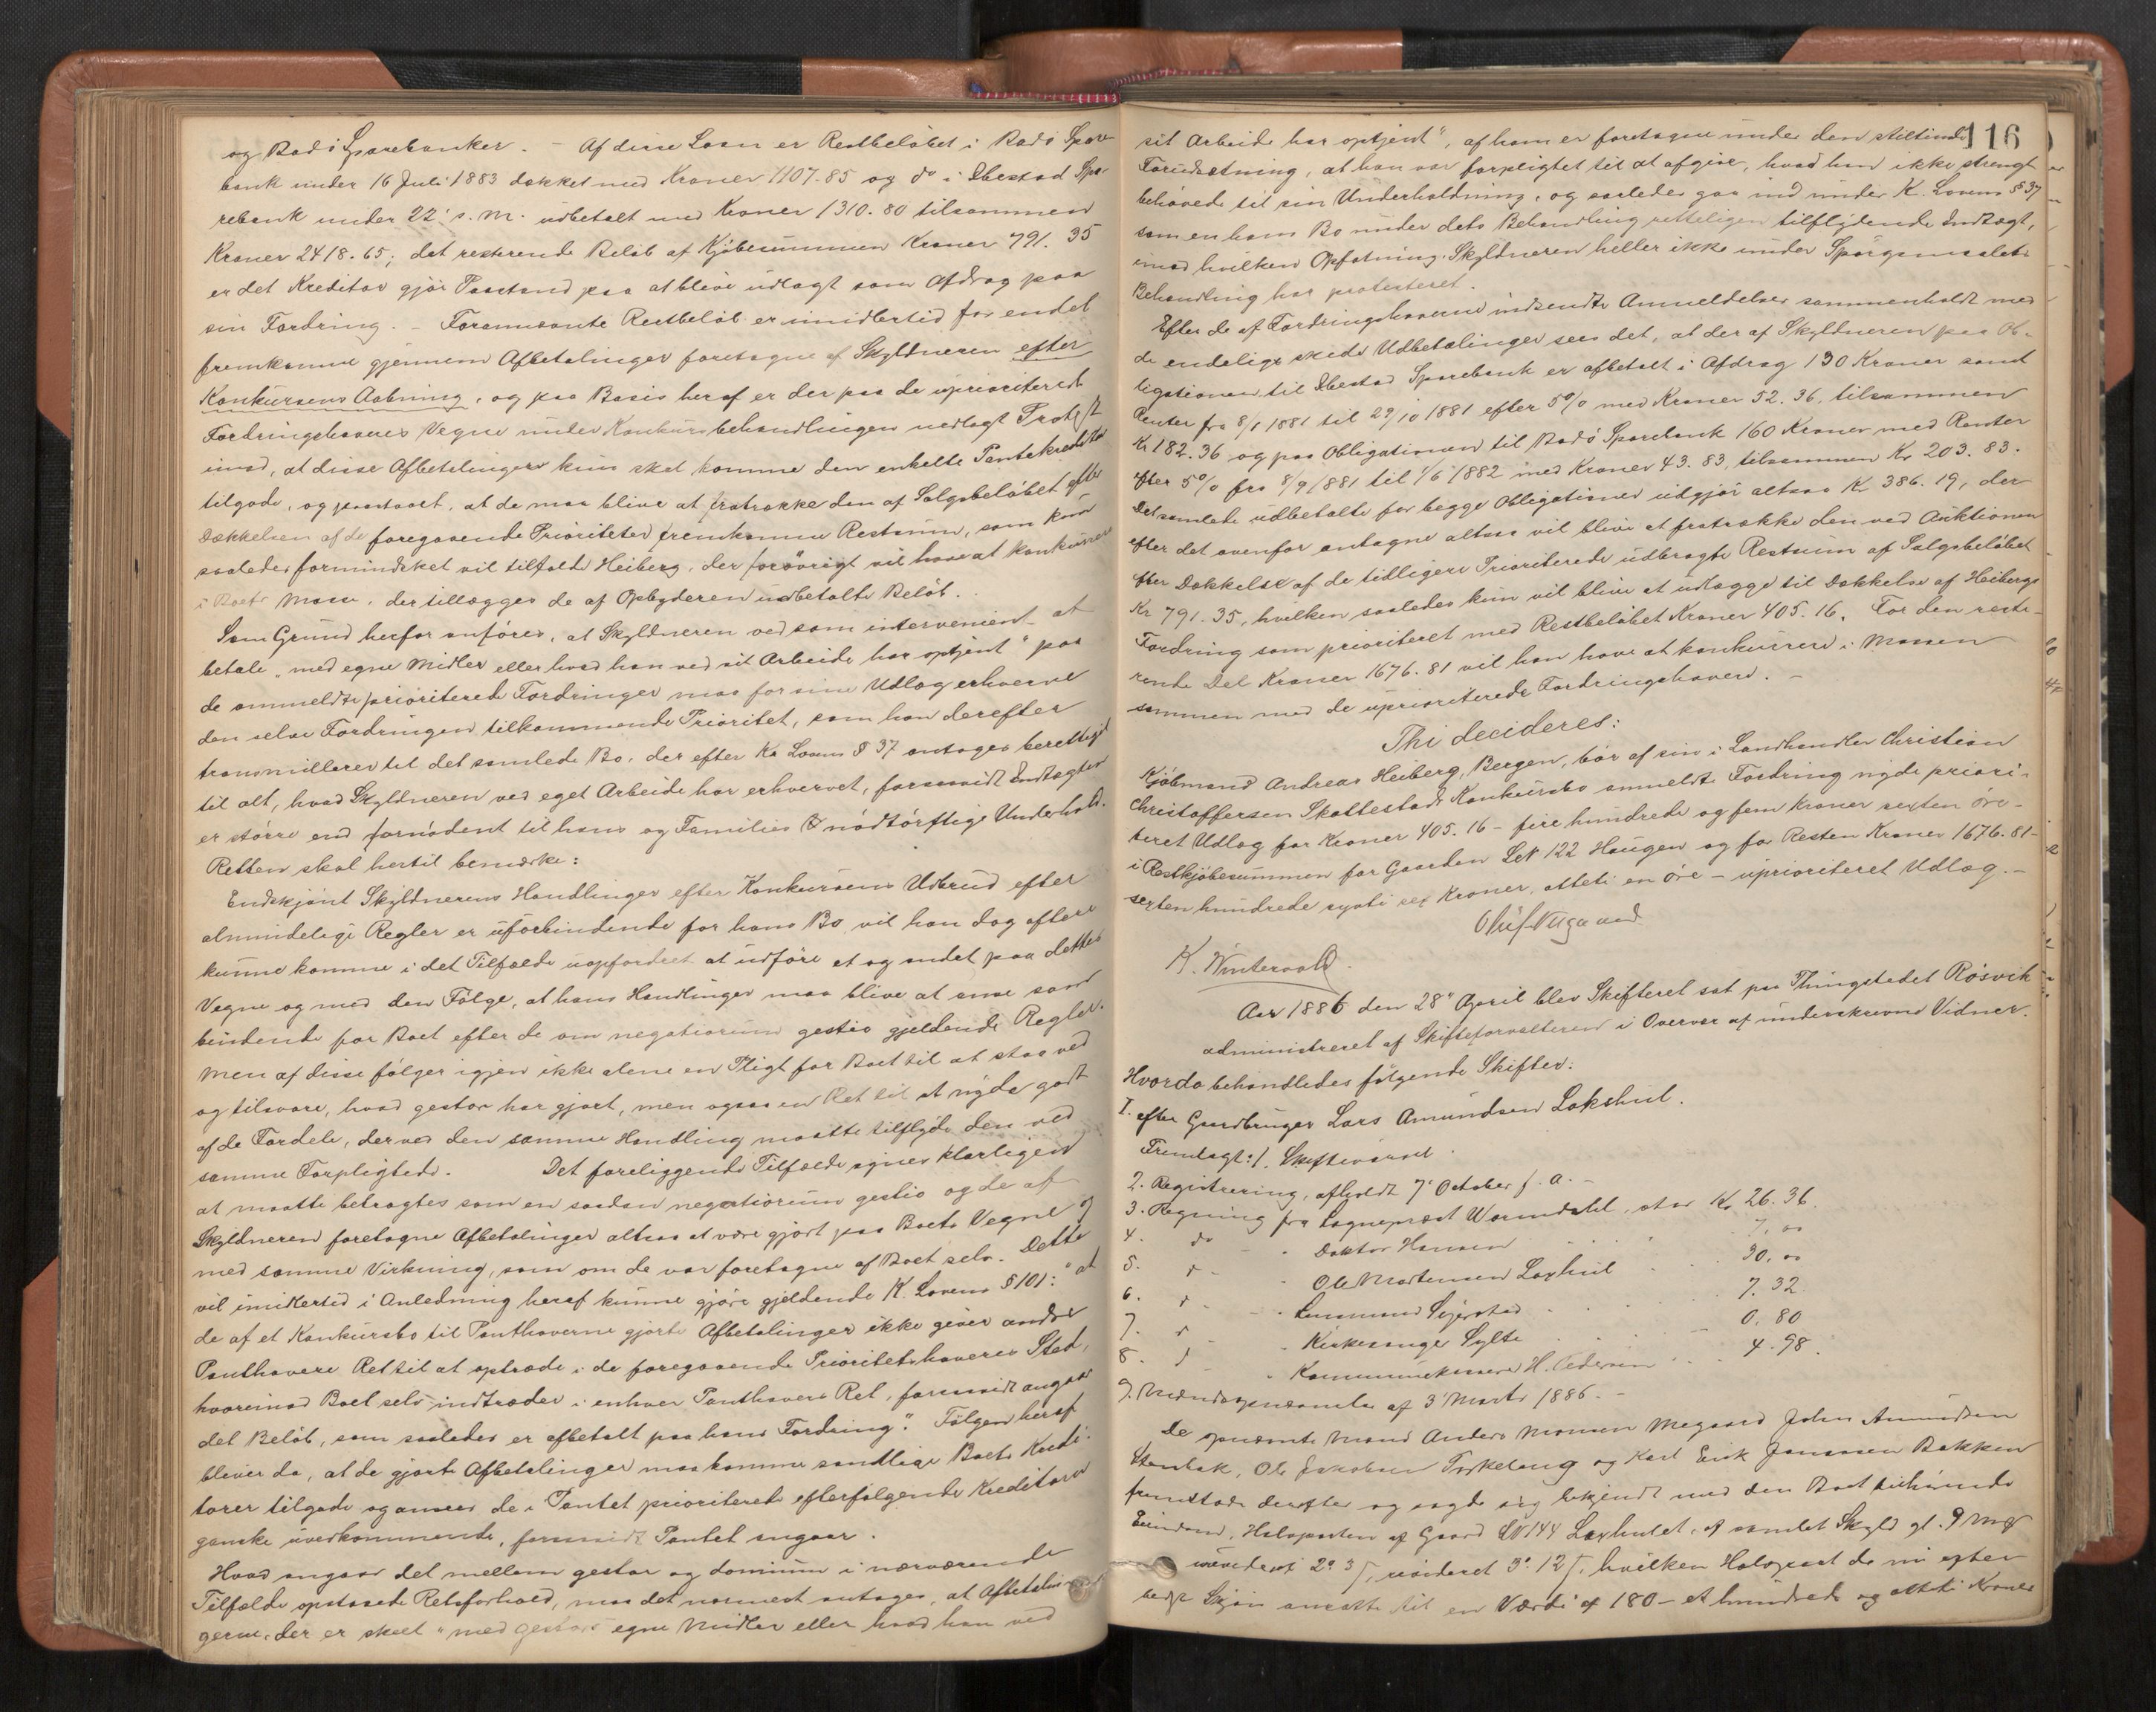 og Bodö Sparebanker. – Af disse Laan er Restbelöbet i Bodö Spare-
bank under 16 Juli 1883 dækket med Kroner 1107.85 og do i Ibestad Spa-
rebank under 22' s. M. udbetalt med Kroner 1310.80 tilsammen
Kroner 2418.65; det resterende Belöb af Kjöbesummen Kroner 791.35
er det Kreditor gjör Paastand paa at blive udlagt som Afdrag paa
sin Fordring. – Forannævnte Restbelöb er imidlertid for endel
fremkomne gjennem Afbetalinger foretagne af Skyldneren efter
Konkursens Aabning, og paa Basis heraf er der paa de uprioriterede
Fordringshaveres Vegne under Konkursbehandlingen nedlagt Protest
imod, at disse Afbetalinger kun skal komme den enkelte Pantekreditor
tilgode, og paastaaet, at de maa blive at fratrække den af Salgsbelöbet efter
Dækkelsen af de foregaaende Prioriteter fremkomne Restsum, som kun
saaledes formindsket vil tilfalde Heiberg, der forövrigt vil have at konkurrere
i Boets Masse, der tillægges de af Opbyderen udbetalte Belöb.
Som Grund herfor anföres, at Skyldneren ved som intervenient at
betale "med egne Midler eller hvad han ved sit Arbeide har optjent" paa
de anmeldte prioriterede Fordringer maa for sine Udlæg erhverve
den selve Fordringen tilkommende Prioritet, som han derefter
transmitterer til det samlede Bo, der efter Ks Lovens § 37 antages berettiget
til alt, hvad Skyldneren ved eget Arbeide har erhvervet, forsaavidt Indtægten
er större end fornödent til hans og Families nödtörftige Underhold.
Retten skal hertil bemærke:
Endskjönt Skyldnerens Handlinger efter Konkursens Udbrud efter
almindelige Regler er uforbindende for hans Bo vil han dog oftere
kunne komme i det Tilfælde uopfordret at udföre et og andet paa dettes
Vegne og med den Fölge, at hans Handlinger maa blive at anse som
bindende for Boet efter de om negotiorum gestio gjeldende Regler.
Men af disse fölger igjen ikke alene en Pligt for Boet til at staa ved
og tilsvare, hvad gestor har gjort, men ogsaa en Ret til at nyde godt
af de Fordele, der ved den samme Handling maatte tilflyde den ved
samme Forpligtede. Det foreliggende Tilfælde synes klarligen
at maatte betragtes som en saadan negotiorum gestio og de af
Skyldneren foretagne Afbetalinger altsaa at være gjort paa Boets Vegne og
med samme Virkning, som om de var foretagne af Boet selv. Dette
vil imidlertid i Anledning heraf kunne gjöre gjeldende K. Lovens § 101: "at
de af et Konkursbo til Panthaverne gjorte Afbetalinger ikke giver andre
Panthavere Ret til at optræde i de foregaaende Prioritetshaveres Sted,
hvorimod Boet selv indtræder i enhver Panthavers Ret, forsaavidt angaar
det Belöb, som saaledes er afbetalt paa hans Fordring." Fölgen heraf
bliver da, at de gjorte Afbetalinger maa komme samtlige Boets Kredi-
torer tilgode og ansees de i Pantet prioriterede efterfölgende Kreditorer
ganske uvedkommende, forsaavidt Pantet angaar.
Hvad angaar det mellem gestor og dominus i nærværende
Tilfælde opstaaede Retsforhold, maa det nærmest antages, at Afbetalin-
gerne, der er skeet "med gestors egne Midler eller hvad han ved
116
sit Arbeide har optjent", af ham er foretagne under den stiltiende
Forudsætning, at han var forpligtet til at afgive, hvad han ikke strengt
behövede til sin Underholdning, og saaledes gaa ind under K. Lovens § 37
som en hans Bo under dets Behandling retteligen tilflydende Indtægt,
imod hvilken Opfatning Skyldneren heller ikke under Spörgsmaalets
Behandling har protesteret.
Efter de af Fordringshaverne indsendte Anmeldelser sammenholdt med
de endelige skede Udbetalinger sees det, at der af Skyldneren paa Ob-
ligationen til Ibestad Sparebank er afbetalt i Afdrag 130 Kroner samt
Renter fra 8/1 1881 til 29/10 1881 efter 5% med Kroner 52.36, tilsammen
Kr 182.36 og paa Obligationen til Bodö Sparebank 160 Kroner med Renter
efter 5% fra 8/9 1881 til 1/6 1882 med Kroner 43.83, tilsammen Kr 203.83.
Det samlede udbetalte for begge Obligationer udgjör altsaa Kr 386.19, der
efter det ovenfor antagne altsaa vil blive at fratrække den ved Auktionen
efter Dækkelse af de tidligere Prioriterede udbragte Restsum af Salgsbelöbet
Kr 791.35, hvilken saaledes kun vil blive at udlægge til Dækkelse af Heibergs
Fordring som prioriteret med Restbelöbet Kroner 405.16. For den reste-
rende Del Kroner 1676.81 vil han have at konkurrere i Massen
sammen med de uprioriterede Fordringshavere. –
Thi decideres:
Kjöbmand Andreas Heiberg, Bergen, bör af sin i Landhandler Christian
Christoffersen Skattestads Konkursbo anmeldte Fordring nyde priori-
teret Udlæg for Kroner 405.16 – fire hundrede og fem Kroner sexten öre –
i Restkjöbesummen for Gaarden LN 122 Haugen og for Resten Kroner 1676.81 –
sexten hundrede sytti sex Kroner, otteti en öre – uprioriteret Udlæg. –
K. Wintervold.
Aar 1886 den 28' April blev Skifteret sat paa Thingstedet Rösvik
administreret af Skifteforvalteren i Overvær af underskrevne Vidner.
Hvorda behandledes fölgende Skifter:
I. efter Gaardbruger Lars Amundsen Lakshul.
Fremlagt: 1. Skiftevarsel.
2. Registrering, afholdt 7' October f. a. –
3. Regning fra Sognepræst Warmdahl, stor Kr 26.36.
4. do - - Doktor Hansen 7.00
5. d - - Ole Mortensen Laxhul 30.00
6. d - - Lensmand Sejersted 7.32
7. d - - Kirkesanger Sylte 0.80
8. d - - Kommunekasserer H. Pedersen 4.98.
9. af 3' Marts 1886. –
De opnævnte Mænd Anders Monsen Megaard John Amundsen
Stenbak, Ole Jakobsen og Karl Erik Jonassen Bakken
fremstod derefter og sagde sig bekjendt med den Boet tilhörende
Eiendom, Halvparten af Gaard LN 144 Laxhullet, af samlet Skyld gl. 9 Mrk
2d 3 s, revideret 3d 12 s, hvilken Halvpart de nu efter
bedste Skjön ansatte til en Værdi af 180 – et hundrede og otteti Kroner